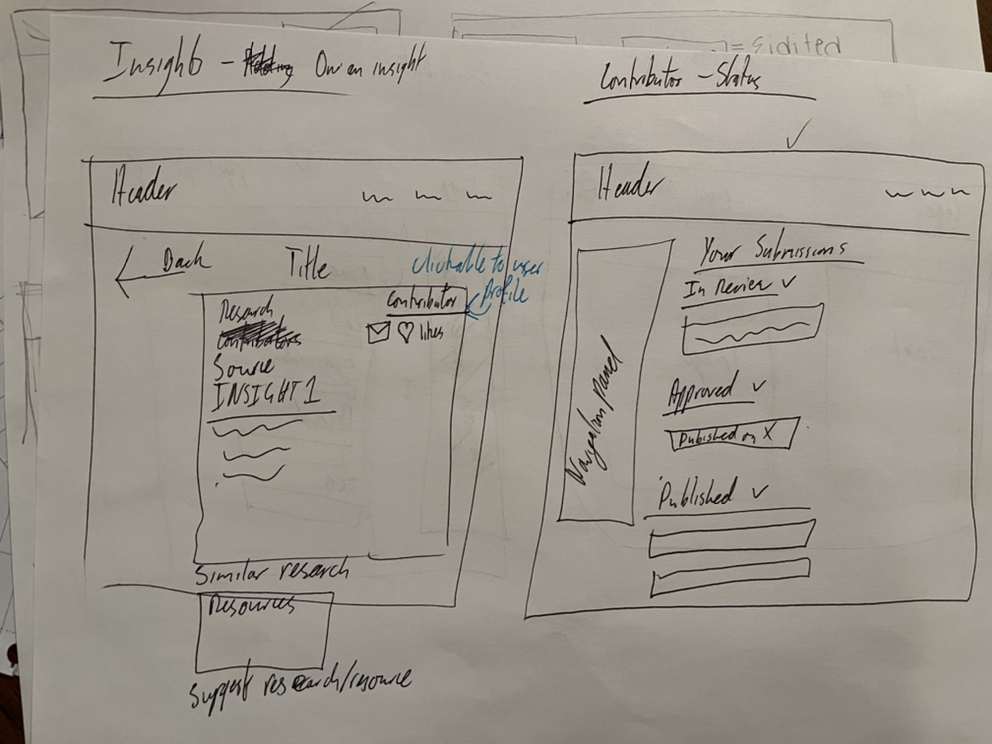 = Eidited
Insight - On an insight
Header
Back
Title
clickable to user
profile
Research
Contributor
contributors
likes
Source
INSIGHT 1
Similar research
Resources
Suggest research/resource
Contributor - Status
Header
Navigation panel
Your Submissions
In Review
Approved
Published on X
Published